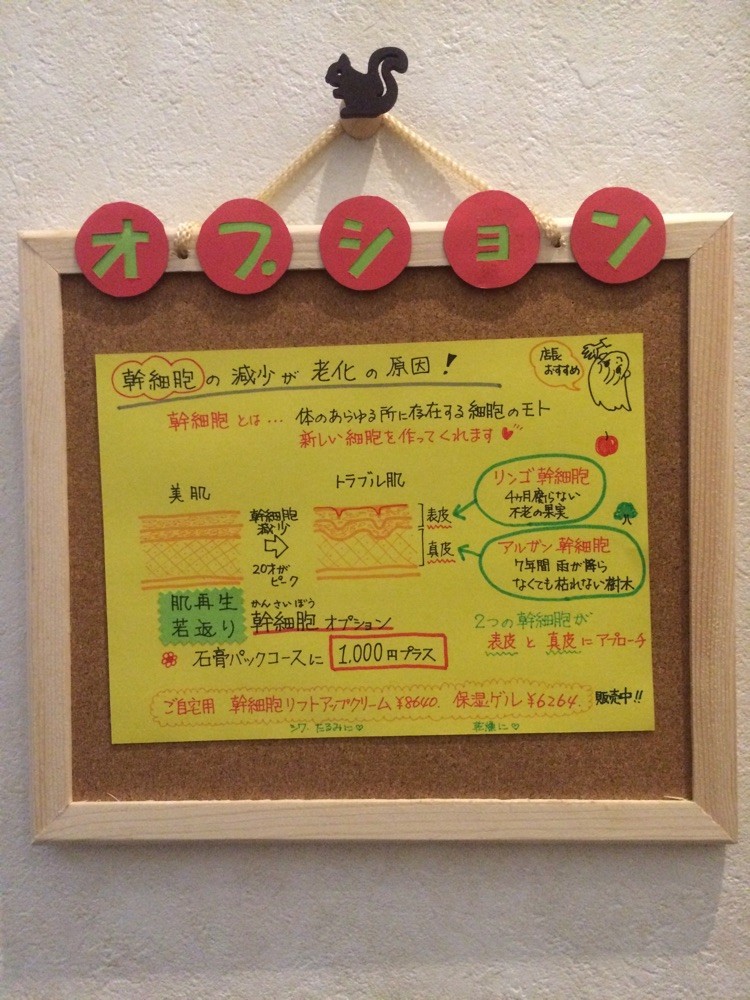 オプション
幹細胞の減少が老化の原因!
店長
おすすめ
幹細胞とは… 体のあらゆる所に存在する細胞のモト
新しい細胞を作ってくれます
美肌
幹細胞
減少
20才が
ピーク
トラブル肌
表皮
真皮
リンゴ幹細胞
4ヶ月腐らない
不老の果実
アルガン幹細胞
7年間雨が降ら
なくても枯れない樹木
肌再生
若返り
かんさいぼう
幹細胞オプション
2つの幹細胞が
表皮と真皮にアプローチ
石膏パックコースに 1.000円プラス
ご自宅用 幹細胞リフトアップクリーム ¥8640. 保湿ゲル ¥6264. 販売中!!
シワ たるみに♡ 乾燥に♡